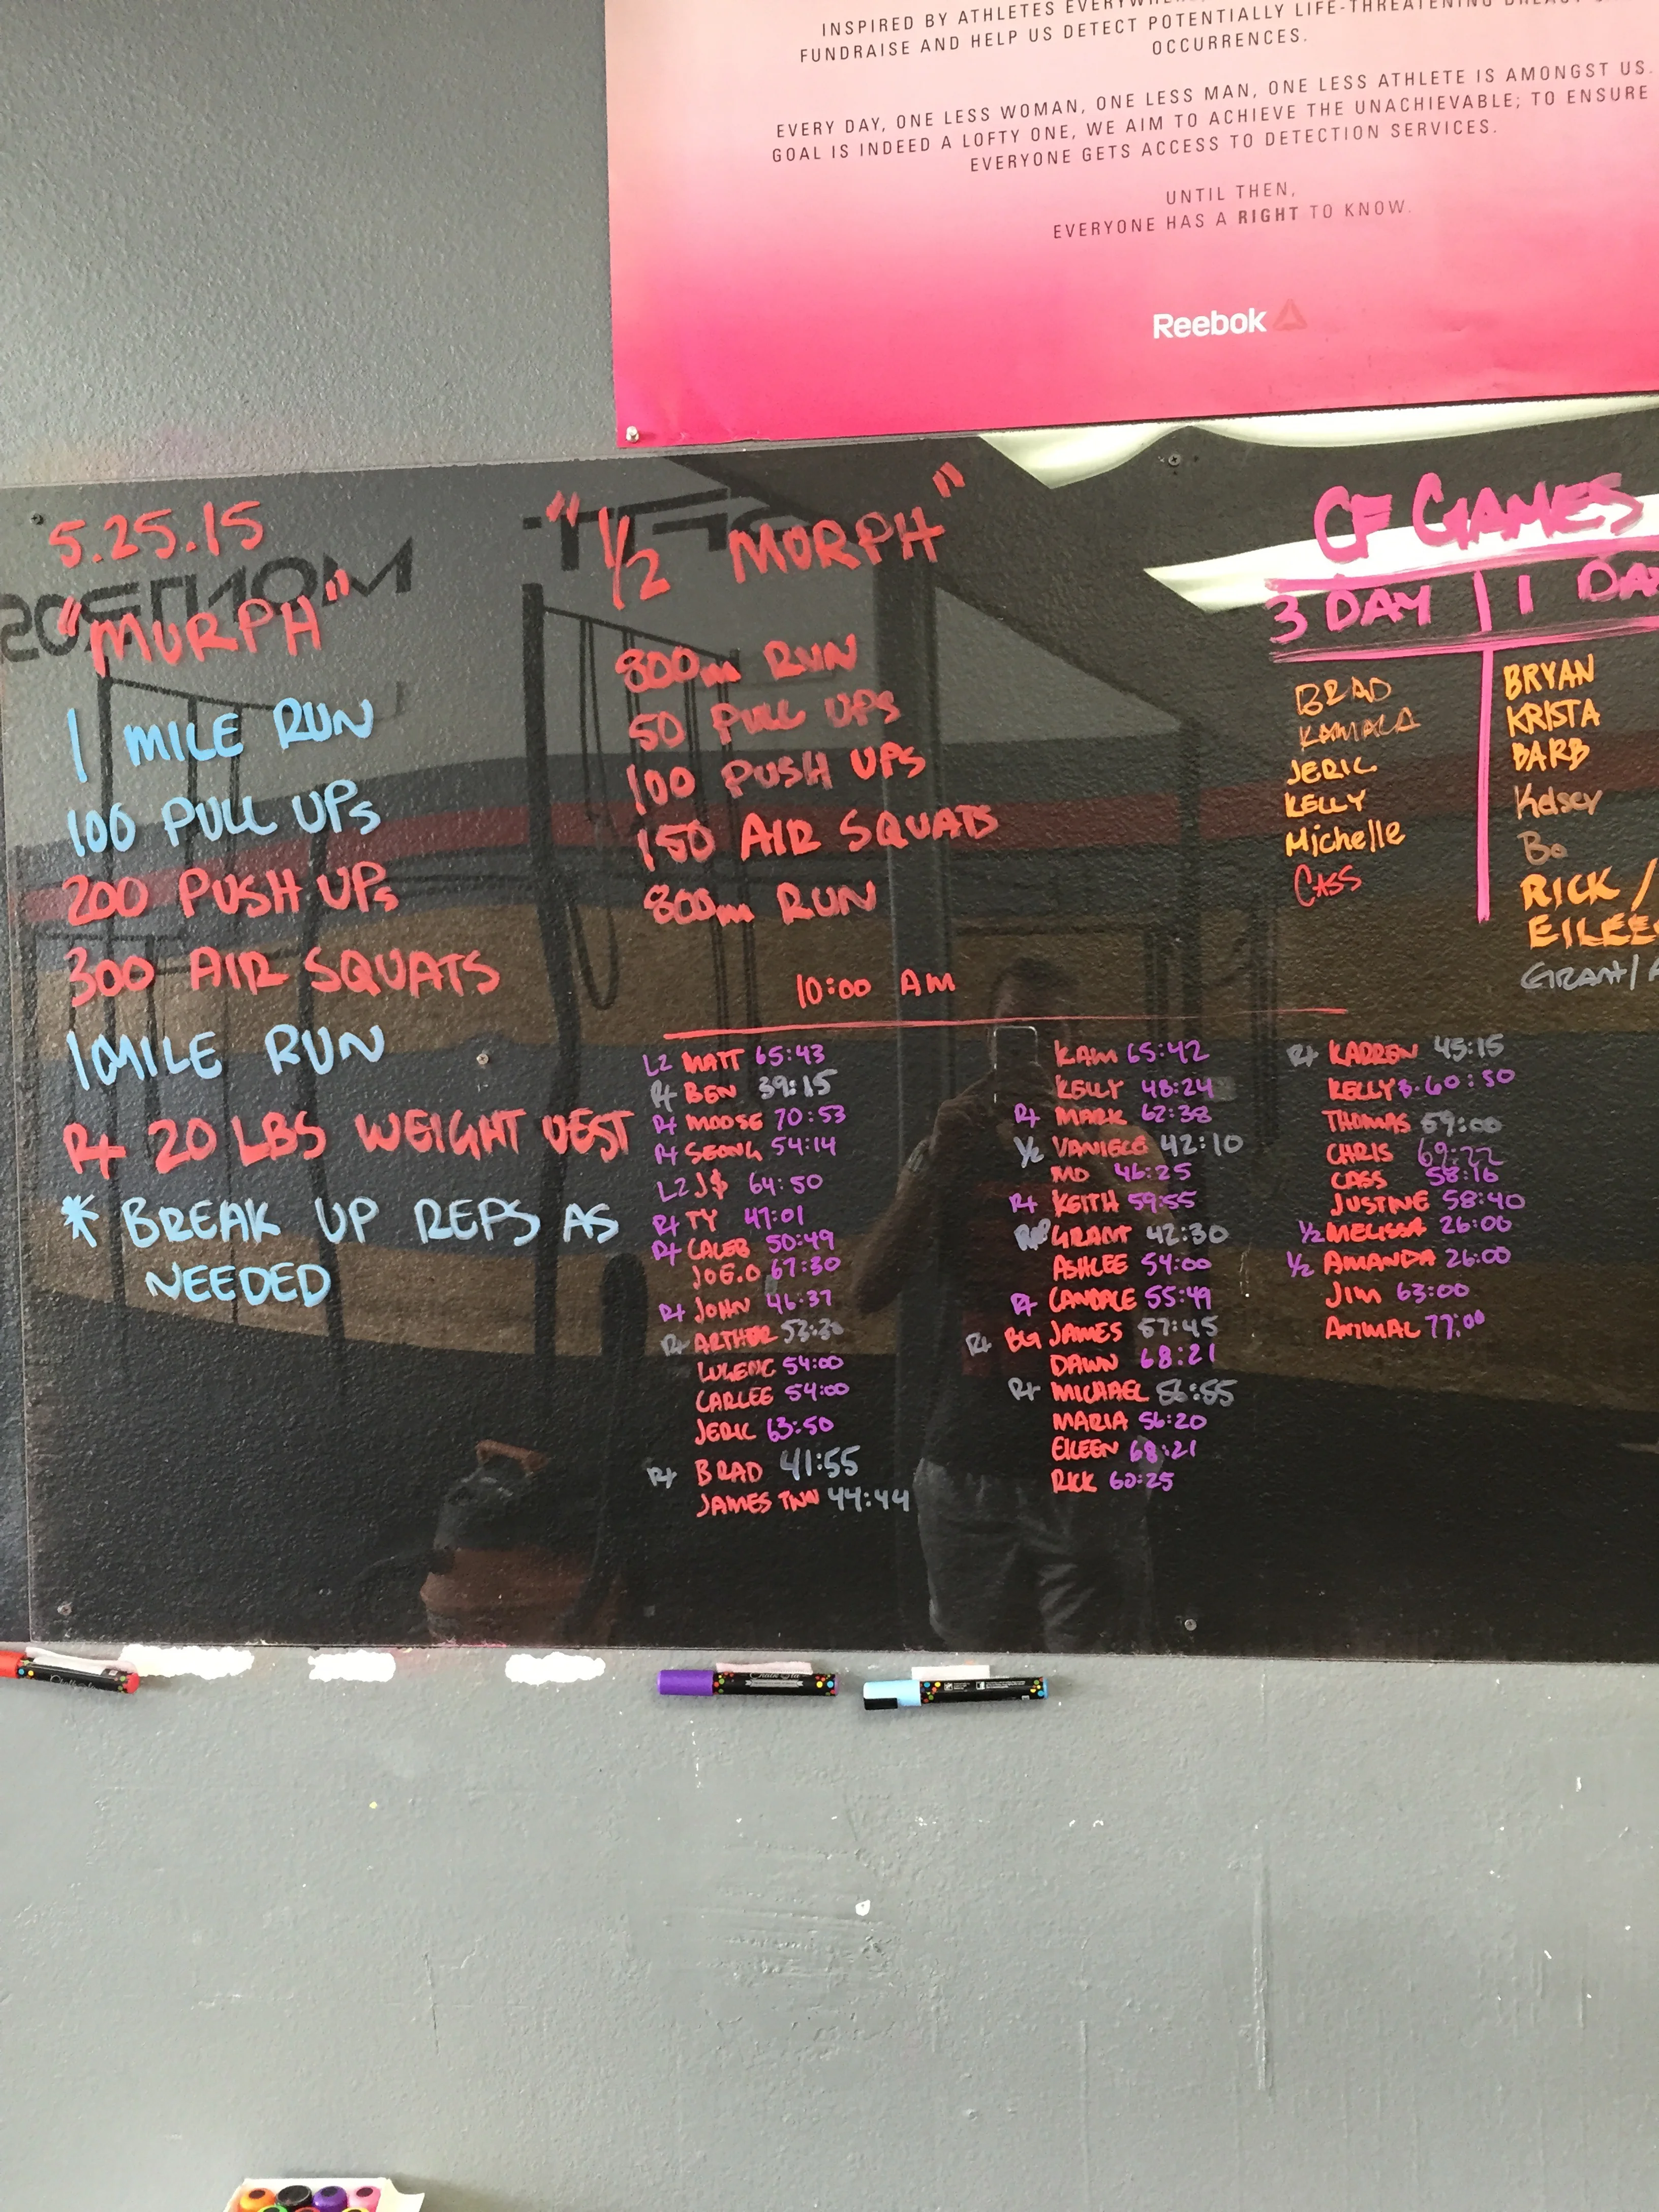 INSPIRED BY ATHLETES
FUNDRAISE AND HELP US DETECT POTENTIALLY LIFE-THREATENING
OCCURRENCES.
EVERY DAY, ONE LESS WOMAN, ONE LESS MAN, ONE LESS ATHLETE IS AMONGST US.
GOAL IS INDEED A LOFTY ONE, WE AIM TO ACHIEVE THE UNACHIEVABLE; TO ENSURE
EVERYONE GETS ACCESS TO DETECTION SERVICES.
UNTIL THEN,
EVERYONE HAS A RIGHT TO KNOW.
Reebok
5.25.15
"MURPH"
1 MILE RUN
100 PULL UPs
200 PUSH UPs
300 AIR SQUATS
1 MILE RUN
R+ 20 LBS WEIGHT VEST
* BREAK UP REPS AS
NEEDED
"1/2 MURPH"
800m RUN
50 PULL UPS
100 PUSH UPS
150 AIR SQUATS
800m RUN
10:00 AM
L2 MATT 65:43
R+ BEN 39:15
R+ MOOSE 70:53
R+ SEONG 54:14
L2 J$ 64:50
R+ TY 47:01
R+ CALEB 50:49
JOE.O 67:30
R+ JOHN 46:37
R+ ARTHUR
54:00
CARLEE 54:00
JERIC 63:50
R+ BRAD 41:55
JAMES 44:44
KAM 65:42
KELLY 48:24
R+ MARK 62:38
1/2 42:10
MO 46:25
R+ KEITH 59:55
GRANT 42:30
ASHLEE 54:00
R+ CANDACE 55:49
R+ BG JAMES 57:45
DAWN 68:21
R+ MICHAEL 56:55
MARIA 56:20
EILEEN 68:21
RICK 60:25
R+ KADREN 45:15
KELLY B. 60:50
THOMAS 59:00
CHRIS
CASS 58:16
JUSTINE 58:40
1/2 MELISSA 26:00
1/2 AMANDA 26:00
JIM 63:00
ANIMAL 77:00
CF GAMES
3 DAY | 1
BRAD
KAMALA
JERIC
KELLY
Michelle
CASS
BRYAN
KRISTA
BARB
Kelsey
Bo
RICK /
GRANT/